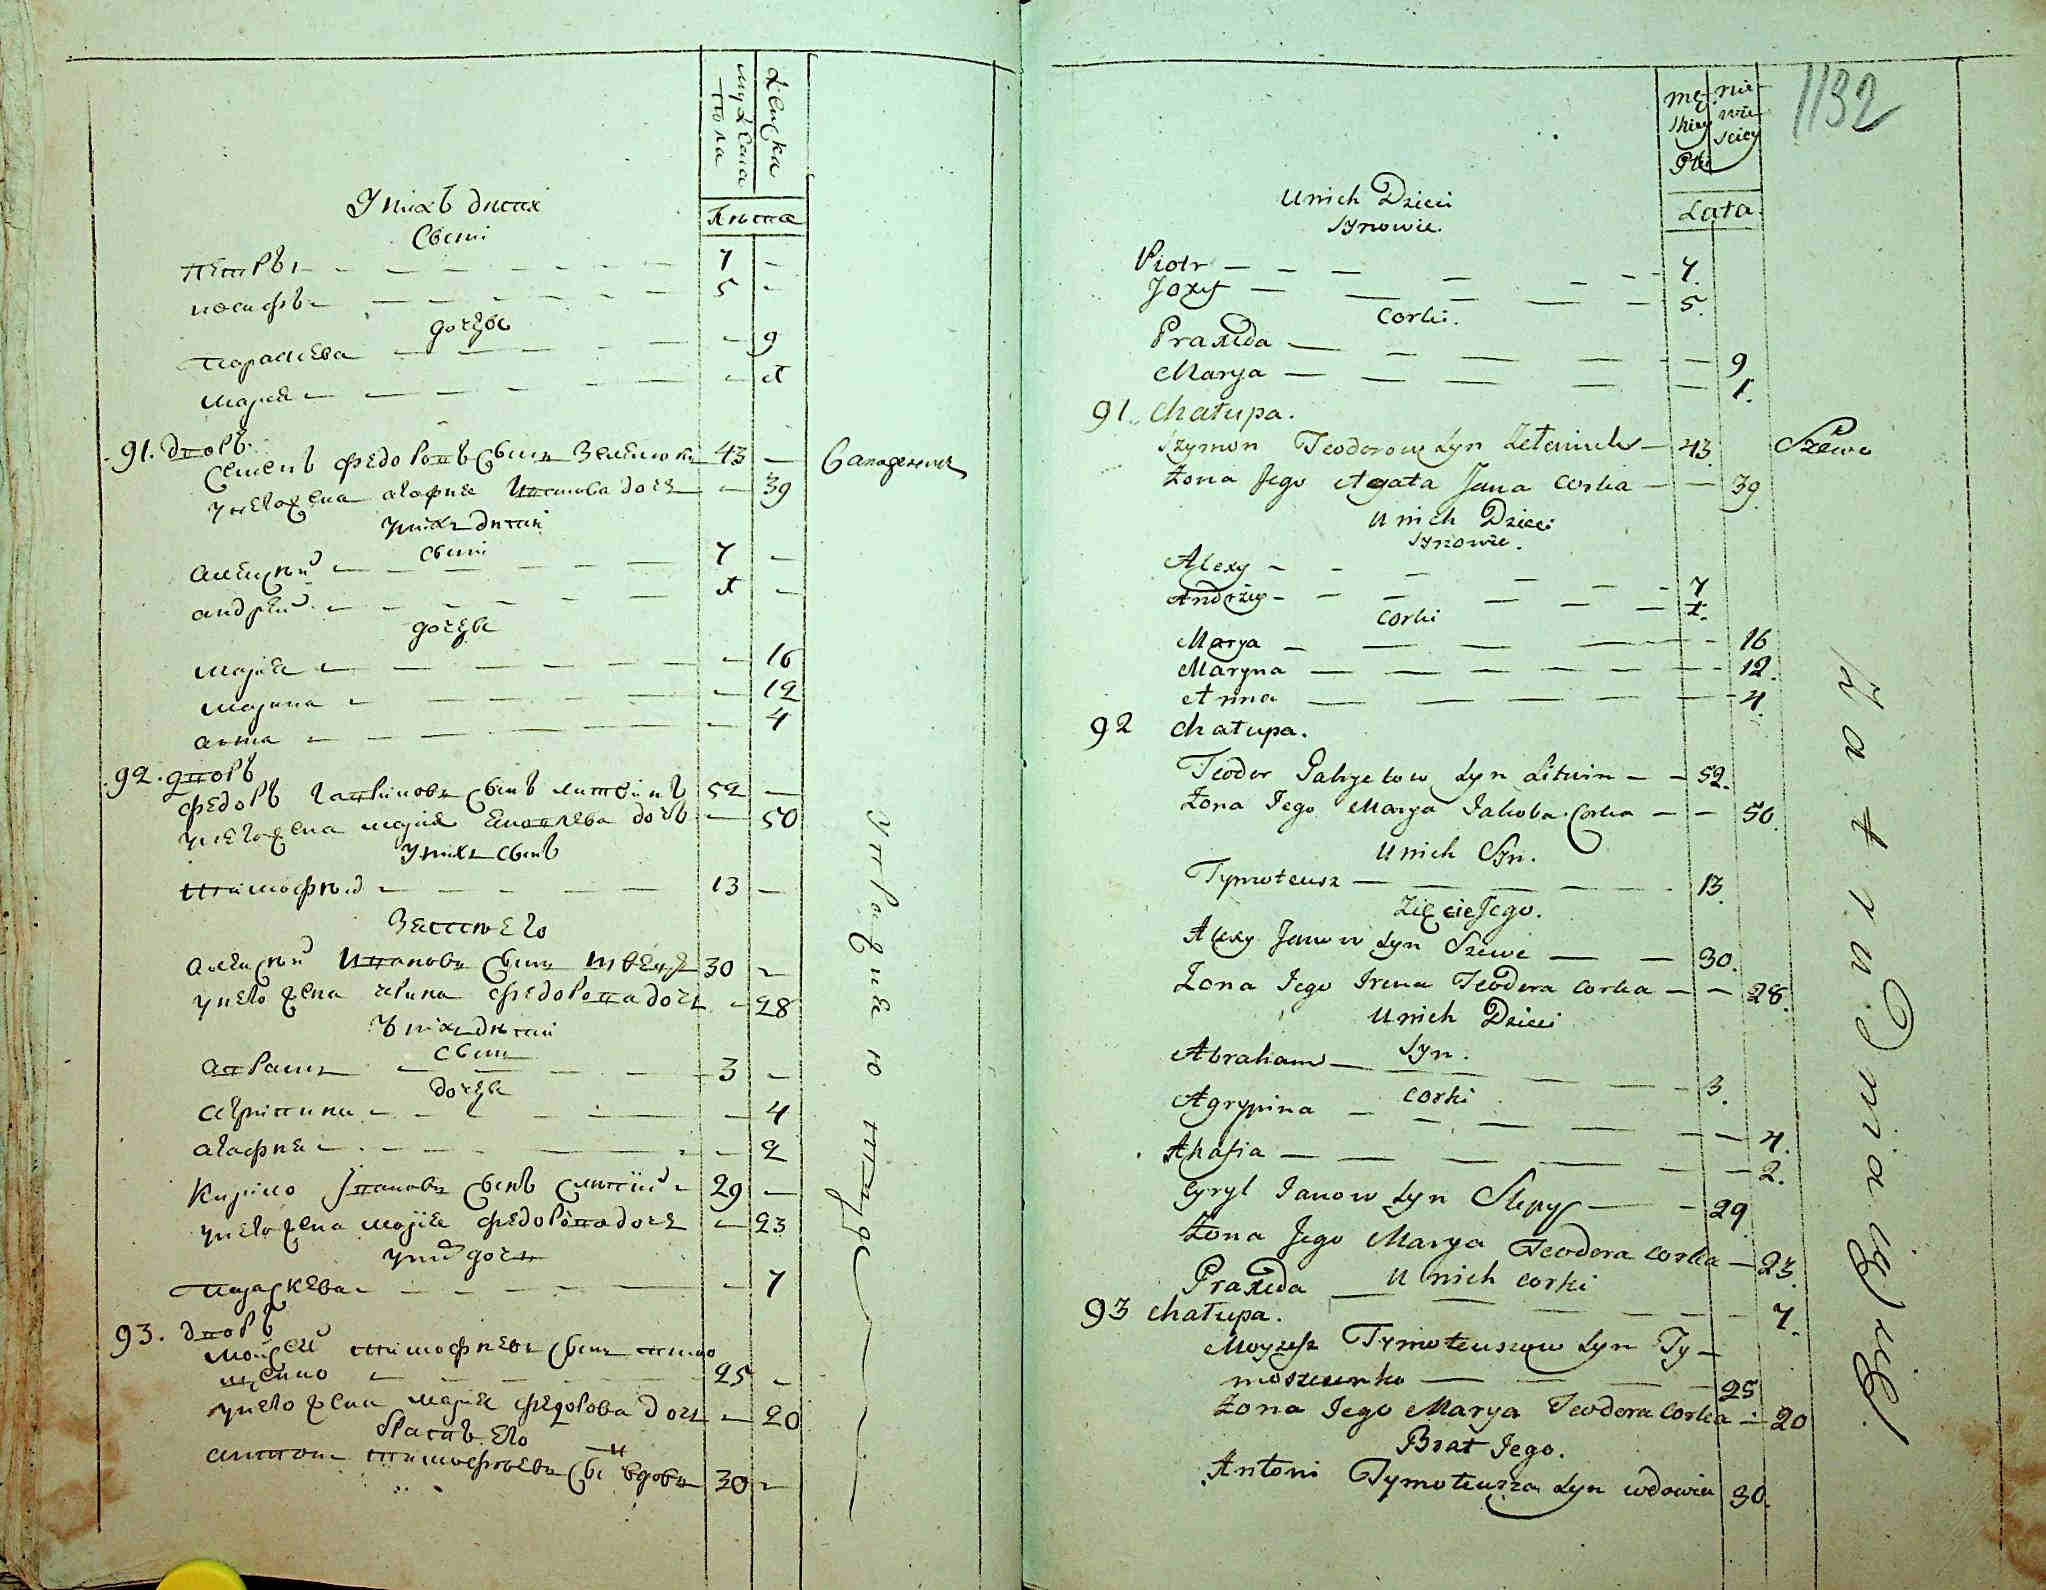 мужеска
пола
женска
Лѣта
У нихъ дѣтей
Сыни
Петръ 7
иосифъ 5
дочеры
Параскева 9
Мария 1
91. дворъ
Семенъ федоровъ сынъ Зеленюкъ 43 Сапожникъ
у него жена агафия Иванова дочь 39
у нихъ дѣтей
сыни
алексѣй 7
андрей 1
дочеры
мария 16
марина 12
анна 4
92. дворъ
федоръ гавриловъ сынъ литвинъ 52
у него жена мария Яковлева дочь 50
у нихъ сынъ
тимофѣй 13
Зять его
алексѣй Ивановъ сынъ швецъ 30
у него жена ирина федорова дочь 28
у нихъ дѣтей
сынъ
аврамъ 3
дочеры
агрипина 4
агафия 2
Кирило Ивановъ сынъ слѣпий 29
у него жена мария федорова дочь 23
у них дочь
Параскева 7
93. дворъ
мойсей тимофѣевъ сынъ тимо
щенко 25
у него жена мария федорова дочь 20
братъ его
антонъ тимофѣевъ сынъ вдовъ 30
1132
męskiey
niewiesciey
Płci
Lata
U nich Dzieci
Synowie.
Piotr 7.
Jozef 5.
Corki.
Praxeda 9
Marya 1.
91. Chałupa.
Szymon Teodorow Syn Zeleniuk 43. Szewc
Żona Jego Agata Jana Corka 39.
U nich Dzieci
Synowie.
Alexy 7
Andrzey 1.
Corki
Marya 16
Maryna 12.
Anna 4.
92 Chałupa.
Teodor Gabryelow Syn Litwin 52.
Żona Jego Marya Jakoba Corka 50.
U nich Syn.
Tymoteusz 13.
Zięcie Jego.
Alexy Janow Syn Szewc 30.
Żona Jego Irena Teodora Corka 28.
U nich Dzieci
Syn.
Abraham 3.
Corki
Agrypina 4.
Ahafia 2.
Cyryl Janow Syn Slepy 29
Żona Jego Marya Teodora Corka 23.
U nich Corki
Praxeda 7.
93 Chałupa.
Moyżesz Tymoteuszow Syn Ty
moszczenko 25
Żona Jego Marya Teodora Corka 20
Brat Jego.
Antoni Tymoteusza Syn wdowiec 30.